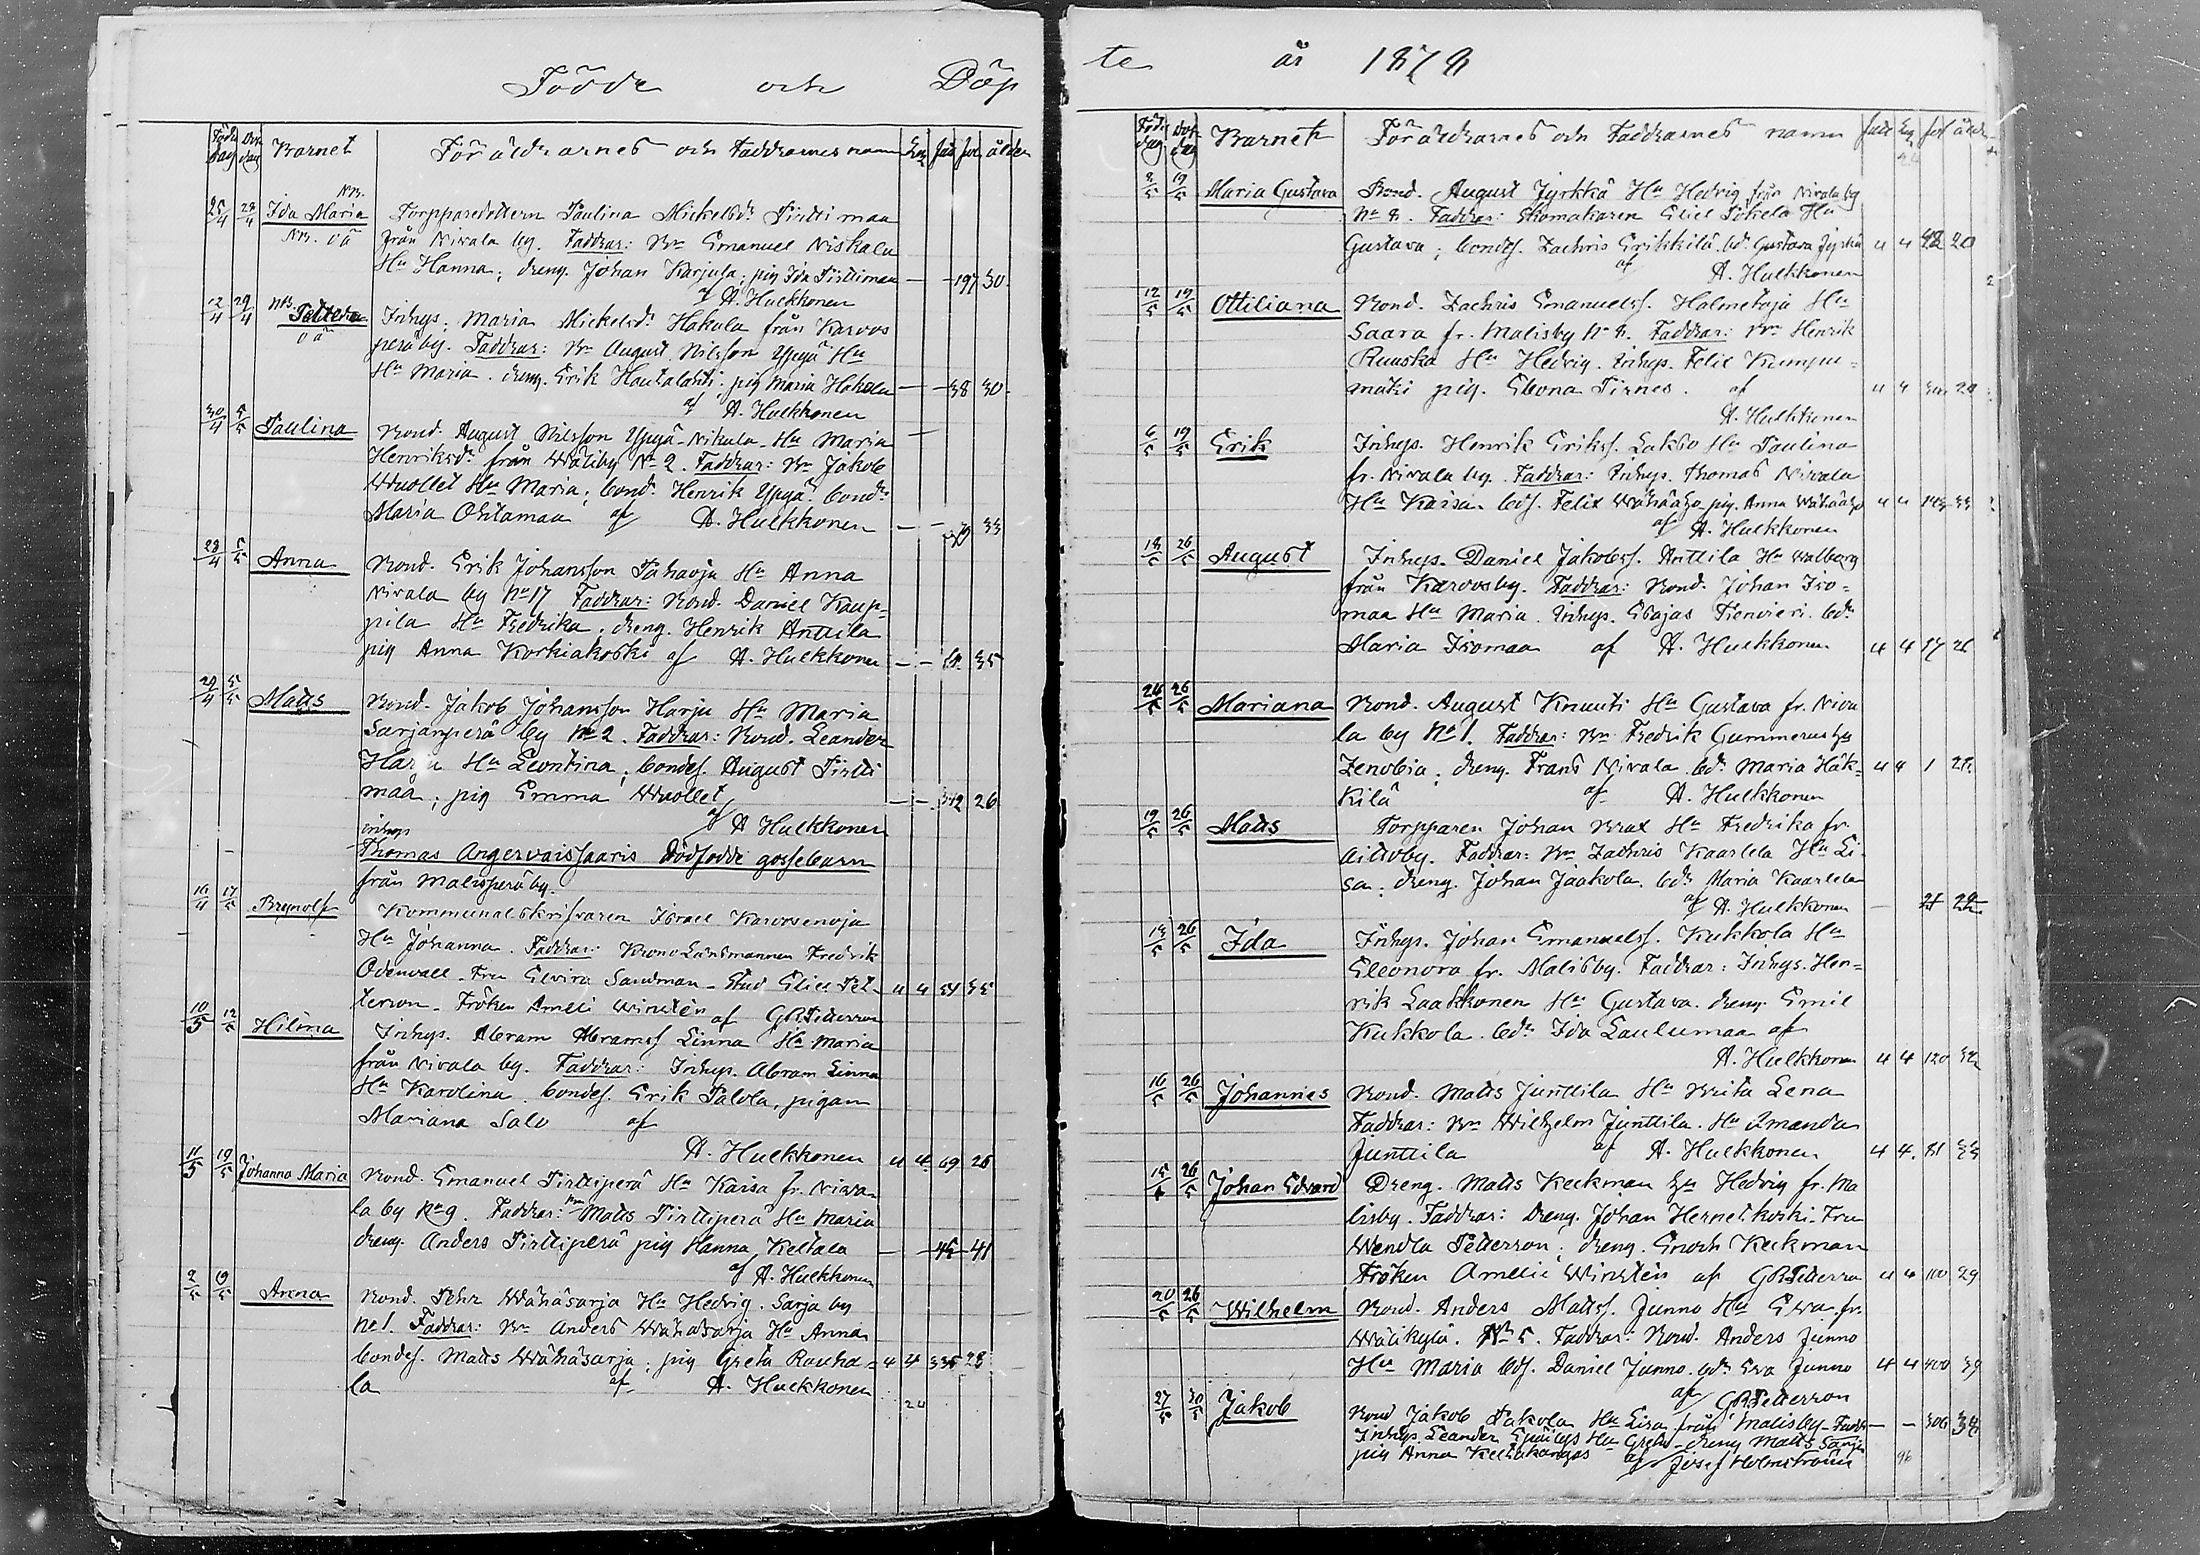 Födde och Döp
Föds dag Döp dag Barnet Föräldrarnes och Faddrarnes namn pol ålder
NB.
25/4 28/4 Ida Maria Torpparedottern Paulina Mickelsdr Pirttimaa
NB. oä från Nivala by. Faddrar: Bn Emanuel Niskala
Hu Hanna; dreng. Johan Karjula; pig Ida Pirttimaa — — 197 30.
af A. Hulkkonen
12/4 29/4 NB. Inhys. Maria Mickelsdr Hakula från Karvos
oä perä by. Faddrar: Bn August Nilsson Yppyä Hu
Hu Maria. dreng. Erik Hautalahti; pig Maria Hakola — — 38 30.
af A. Hulkkonen
30/4 5/5 Paulina Bond. August Nilsson Yppyä-Nikula Hu Maria —
Henriksdr från Wäliby No 2. Faddrar: Bn Jakob
Wuollet Hu Maria; bond. Henrik Yppyä bondr
Maria Ohtamaa af A. Hulkkonen — — 33
28/4 5/5 Anna Bond. Erik Johansson Pahaoja Hu Anna
Nivala by No 17 Faddrar: Bond. Daniel Kaup-
pila Hu Fredrika; dreng. Henrik Anttila
pig Anna Korkiakoski af A. Hulkkonen — — 35
29/4 5/5 Matts Bond. Jakob Johansson Harju Hu Maria
Sarjanperä by No 2. Faddrar: Bond. Leander
Harju Hu Leontina; bondes. August Pirtti
maa; pig Emma Wuollet — — 342 26
af A Hulkkonen
inhys
Thomas Angervaissaaris Dödfödde gossebarn
från Malisperä by.
16/4 17/5 Brynolf Kommunalskrifvaren Israel Karvosenoja
Hu Johanna. Faddrar: Krono Länsmannen Fredrik
Odenwall - Fru Elvira Sandman - Stud Eliel Pet- 4 4 54 35
terson - Fröken Ameli Winstén af GRPetterson
10/5 12/5 Hilina Inhys. Abram Abramss Linna Hu Maria
från Nivala by. Faddrar: Inhys. Abram Linna
Hu Karolina. bondes. Erik Palola, pigan
Mariana Salo af
A. Hulkkonen 4 4 69 26
11/5 19/5 Johanna Maria Bond. Emanuel Pirttiperä Hu Kaisa fr. Niva-
la by No 9. Faddrar: Bn Matts Pirttiperä Hu Maria
dreng. Anders Pirttiperä pig Hanna Keltala — — 45 — 41
af A. Hulkkonen
2/5 19/5 Anna Bond. Pehr Wähäsarja Hu Hedvig. Sarja by
No 1. Faddrar: Bn Anders Wähäsarja Hu Anna
bondes. Matts Wähäsarja; pig Greta Rauha- 4 4 335 28
la af A. Hulkkonen
24
te år 1878
Föds dag Döp dag Barnet Föräldrarnes och Faddrarnes namn pol ålder
8/5 19/5 Maria Gustava Bond. August Jyrkkä Hu Hedvig från Nivala by
No 8. Faddrar: Skomakaren Eliel Pihela Hu
Gustava; bondes. Zachris Erikkilä bdr Gustava Jyrkkä 4 4 42 20
af A. Hulkkonen
12/5 19/5 Ottiliana Bond. Zachris Emanuelss. Holmetoja Hu
Saara fr. Malisby No 8. Faddrar: Bn Henrik
Ruuska Hu Hedvig. Inhys. Felix Kumpu-
mäki pig. Ebona Pirnes. af 4 4 20
A. Hulkkonen
6/5 19/5 Erik Inhys. Henrik Erikss. Lakso Hu Paulina
fr. Nivala by. Faddrar: Inhys. Thomas Nivala
Hu Kaisa. bds. Felix Wähäaho pig. Anna Wähäaho 4 4 33
af A. Hulkkonen
18/5 26/5 August Inhys. Daniel Jakobss. Anttila Hu Walborg
från Karvosby. Faddrar: Bond. Johan Iso-
maa Hu Maria. Inhys. Esajas Pienvieri. bdr
Maria Isomaa af A. Hulkkonen 4 4 97 26
24/5 26/5 Mariana Bond. August Knuuti Hu Gustava fr. Niva
la by No 1. Faddrar: Bn Fredrik Gummerus Hu
Zenobia; dreng. Frans Nivala. bdr Maria Häk- 4 4 1 28
kilä af A. Hulkkonen
19/5 26/5 Matts Torpparen Johan Brax Hu Fredrika fr.
Aittoby. Faddrar: Bn Zachris Kaarlela Hu Li-
sa; dreng. Johan Jaakola. bdr Maria Kaarlela
af A. Hulkkonen — 21 22
13/5 26/5 Ida Inhys. Johan Emanuelss. Kukkola Hu
Eleonora fr. Malisby. Faddrar: Inhys. Hen-
rik Laakkonen Hu Gustava. dreng. Emil
Kukkola. bdr Ida Laulumaa af
A. Hulkkonen 4 4 120 32
16/5 26/5 Johannes Bond. Matts Junttila Hu Brita Lena
Faddrar: Bn Wilhelm Junttila. Hu Amanda
Junttila af A. Hulkkonen 4 4 81 33
15/5 26/5 Johan Edvard Dreng. Matts Keckman Hu Hedvig fr. Ma
lisby. Faddrar: Dreng. Johan Hernetkoski. Fru
Wendla Petterson; dreng. Enoch Keckman
Fröken Amelie Winstén af GRPetterson 4 4 100 29
20/5 26/5 Wilhelm Bond. Anders Mattss. Junno Hu Ewa fr.
Wälikylä. No 5. Faddrar: Bond. Anders Junno
Hu Maria bds. Daniel Junno. bdr Eva Junno 4 4 400 39
af GRPetterson
27/5 30/5 Jakob Bond Jakob Pakola Hu Lisa från Malisby - Faddr — — 306 34
Inhys. Leander Hu Greta - dreng Matts Sarja
pig Anna Keltakangas af Josef Holmström 96